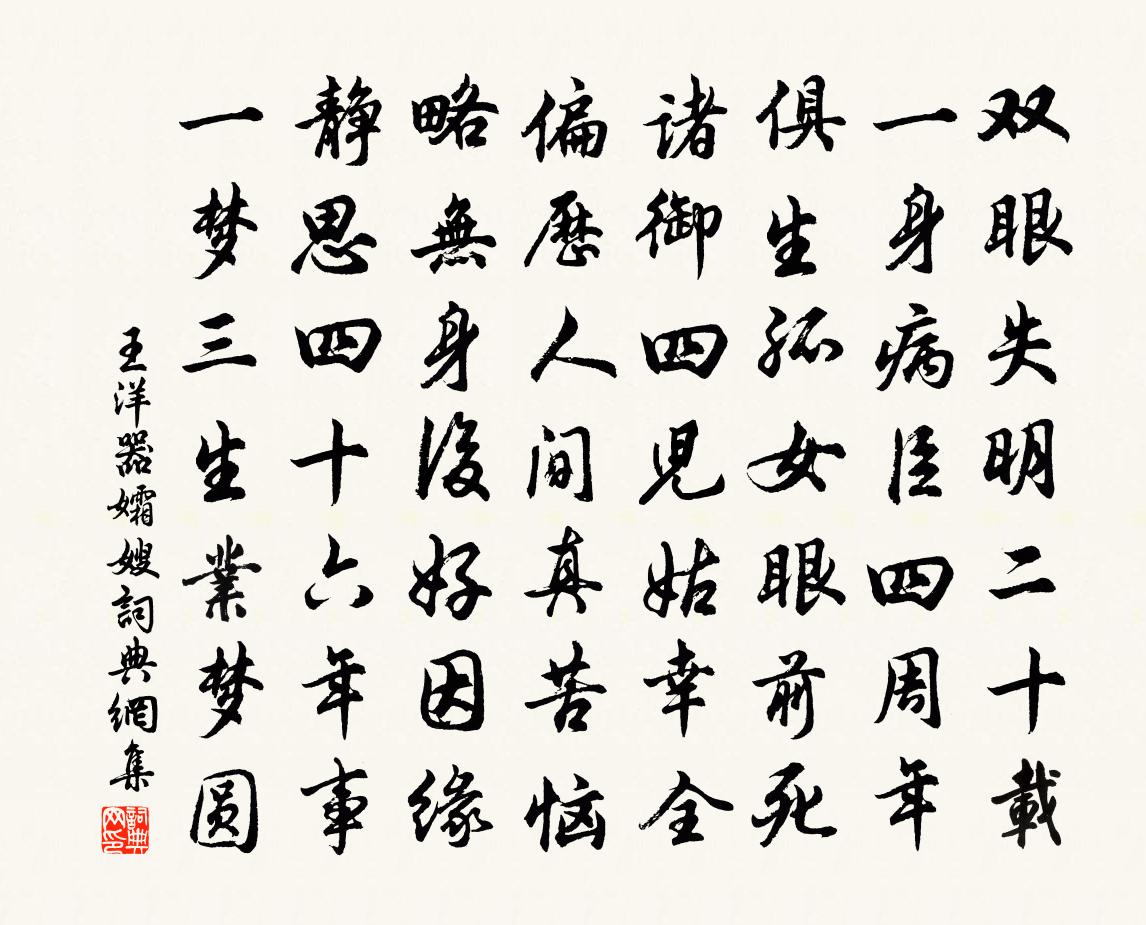 双眼失明二十載
一身病臣四周年
俱生孤女眼前死
诸御四児姑幸全
偏歷人间真苦恼
略無身後好因缘
靜思四十六年事
一梦三生業梦圆
王洋器孀嫂詞典網集
詞典网印